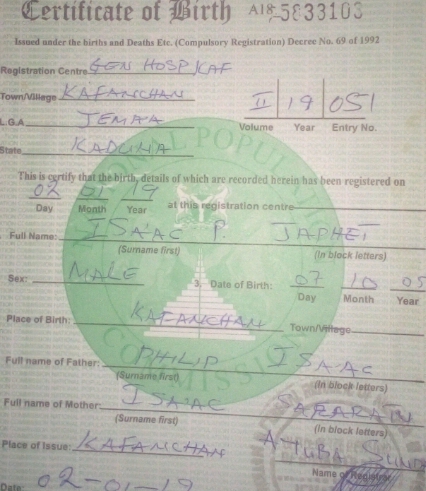 Certificate of Birth A18 5833103
Issued under the births and Deaths Etc. (Compulsory Registration) Decree No. 69 of 1992
Registration Centre GEN HOSP KAF
Town/Village KAFANCHAN
II 19 051
L.G.A JEMA'A
Volume Year Entry No.
State KADUNA
This is certify that the birth, details of which are recorded herein has been registered on
02 01 19
Day Month Year at this registration centre
Full Name: ISAAC P. JAPHET
(Surname first) (In block letters)
Sex: MALE 3. Date of Birth: 07 10 05
Day Month Year
Place of Birth: KAFANCHAN Town/Village
Full name of Father: PHILIP ISAAC
(Surname first) (In block letters)
Full name of Mother: ISAAC
(Surname first) (In block letters)
Place of Issue: KAFANCHAN AYUBA
Name of Registrar
Date: 02-01-19